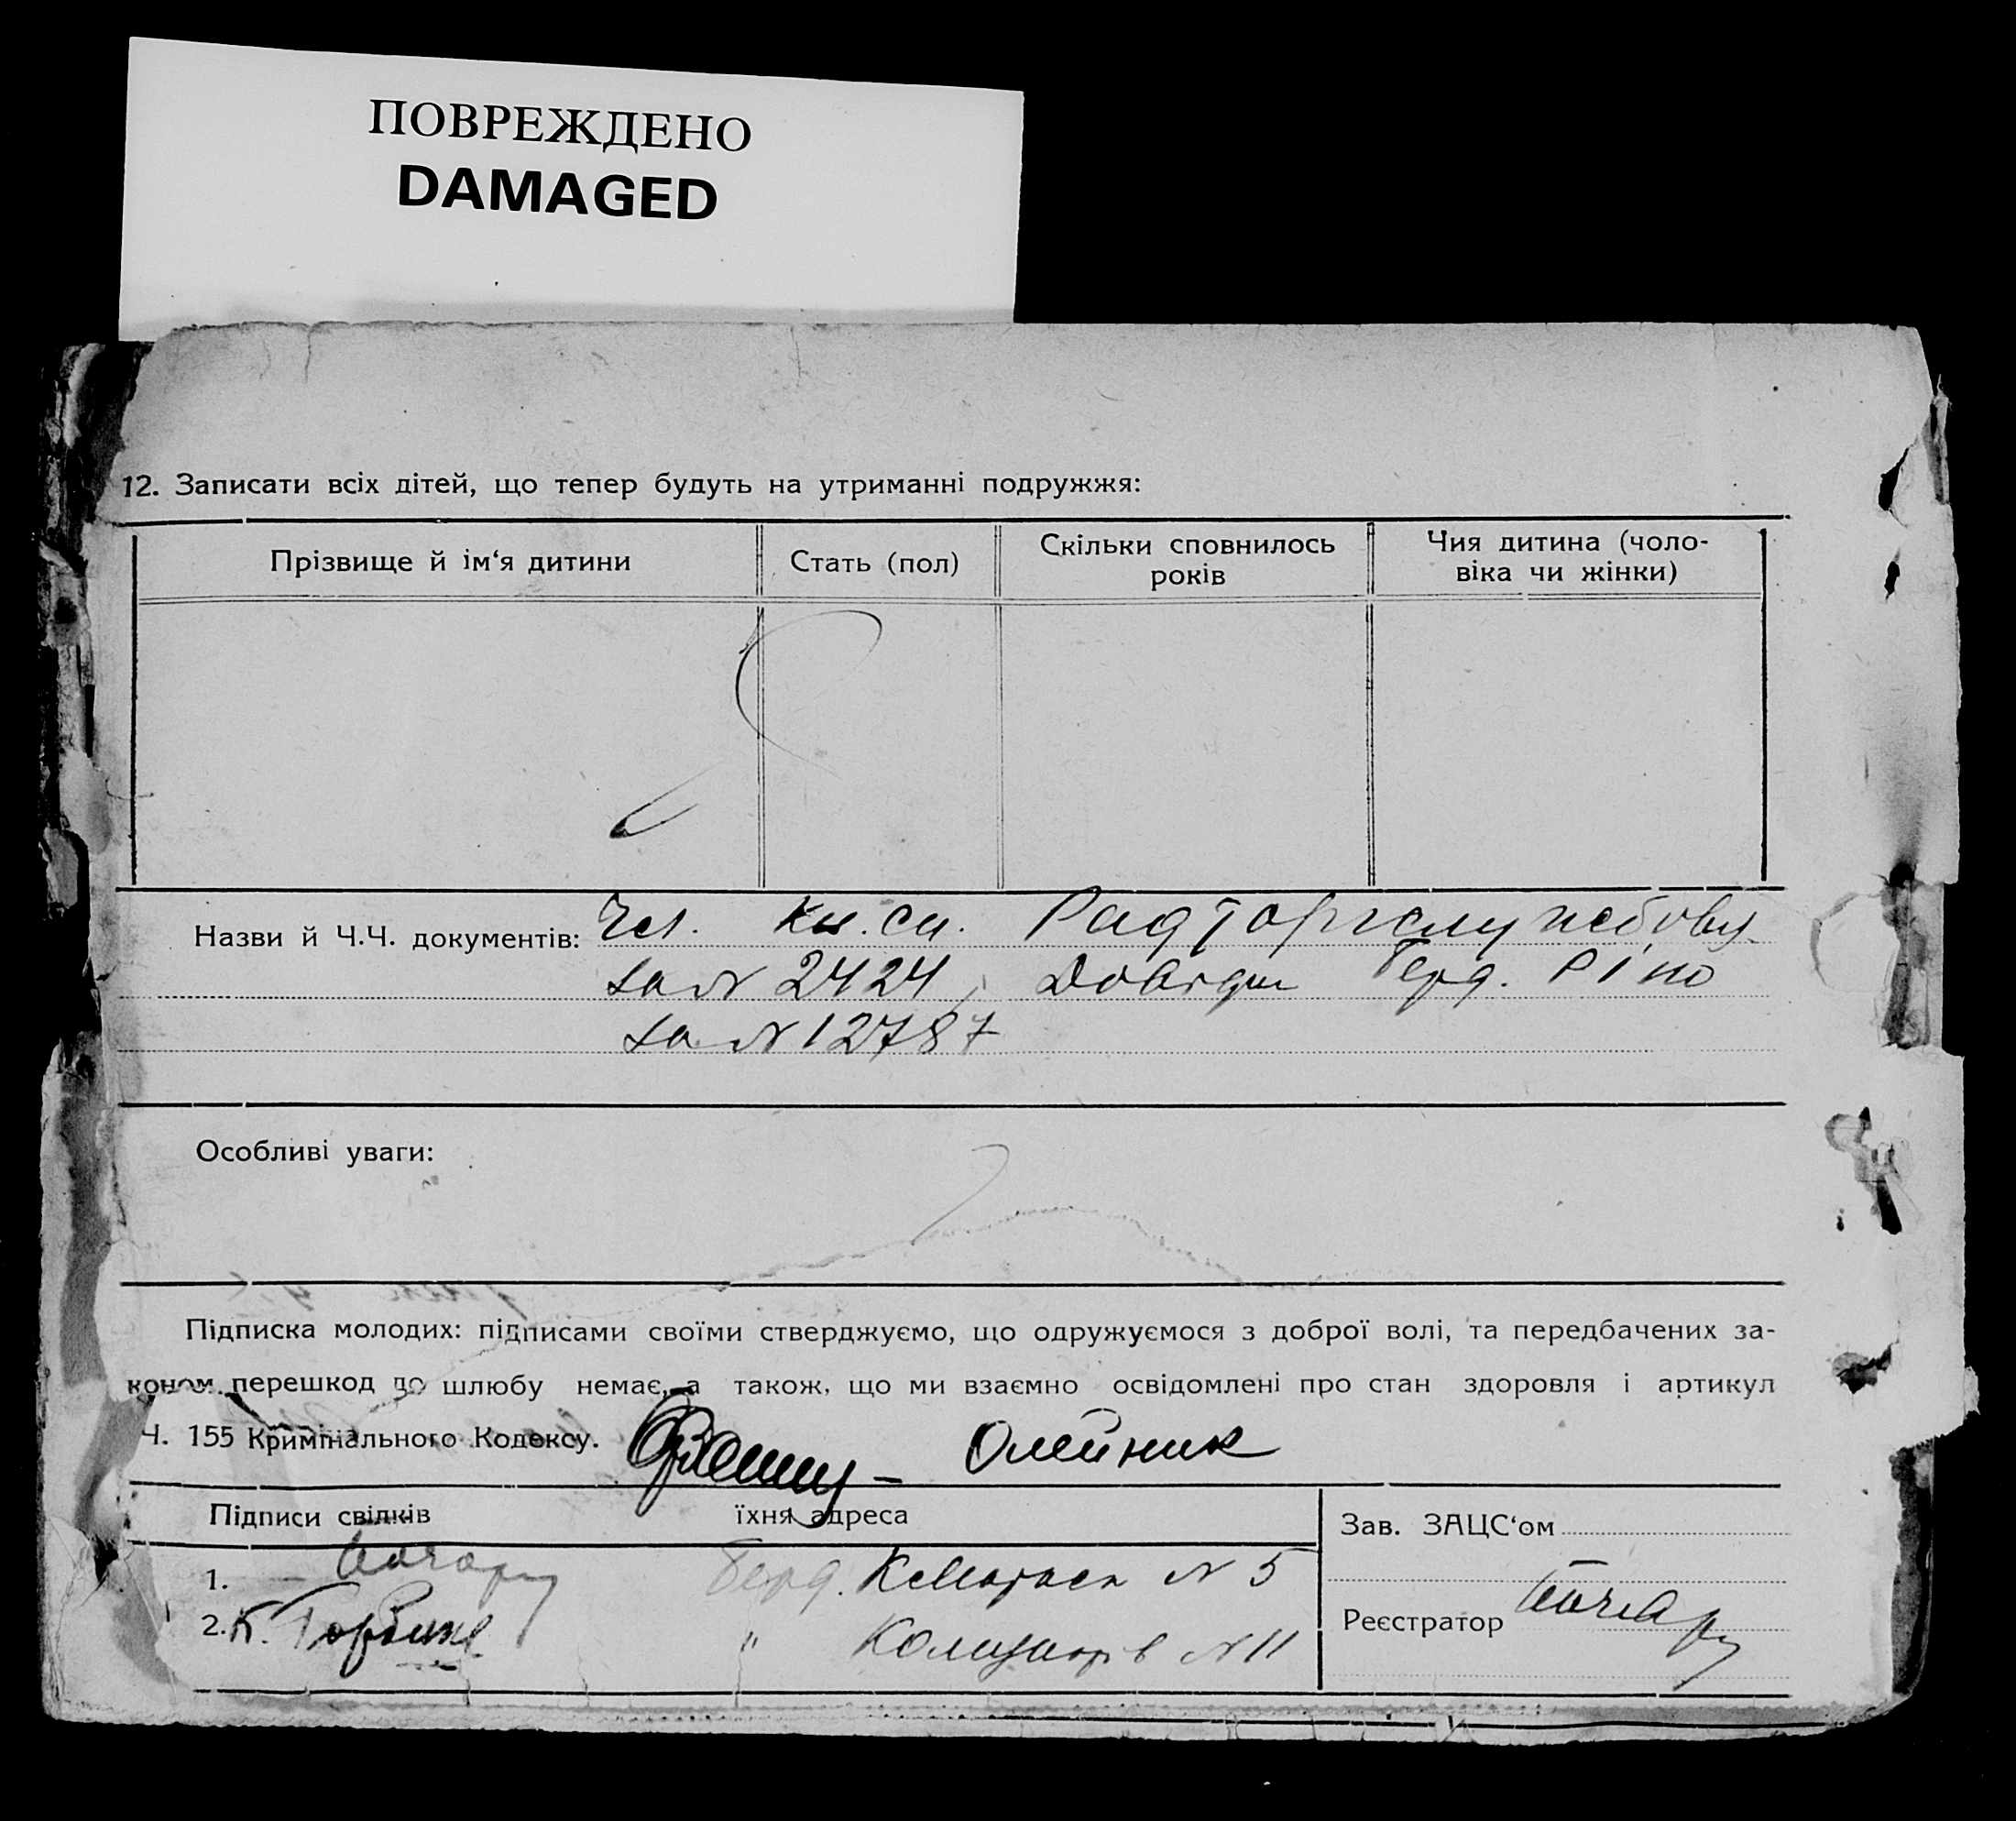 ПОВРЕЖДЕНО
DAMAGED
12. Записати всіх дітей, що тепер будуть на утриманні подружжя:
Прізвище й ім‘я дитини
Стать (пол)
Скільки сповнилось
років
Чия дитина (чоло-
віка чи жінки)
Назви й Ч.Ч. документів: Чл. кн. сп. Радторгслужбовця
за N 2424, Довідка Берд. Ріно
за N 12787
Особливі уваги:
Підписка молодих: підписами своїми стверджуємо, що одружуємося з доброї волі, та передбачених за-
коном перешкод до шлюбу немає, а також, що ми взаємно освідомлені про стан здоровля і артикул
Ч. 155 Кримінального Кодексу. Олейник
Підписи свідків
їхня адреса
Зав. ЗАЦС‘ом
1. Берд. N 5
2. К. " N 11
Реєстратор